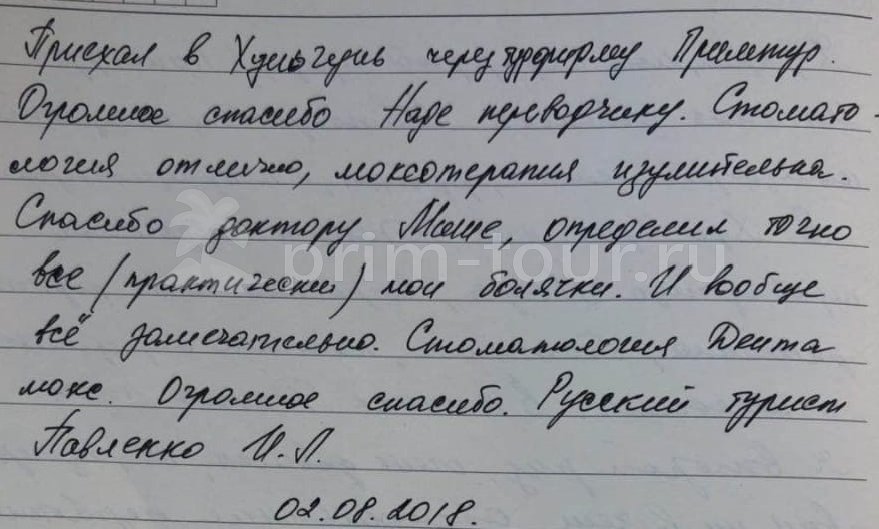 Приехал в Хуньчунь через турфирму Примтур.
Огромное спасибо Наде переводчику. Стомато-
логия отлично, моксотерапия изумительна.
Спасибо доктору Мише, определил точно
все (практически) мои болячки. И вообще
всё замечательно. Стоматология Дента
мокс. Огромное спасибо. Русский турист
Павленко И.Л.
02.08.2018.
prim-tour.ru